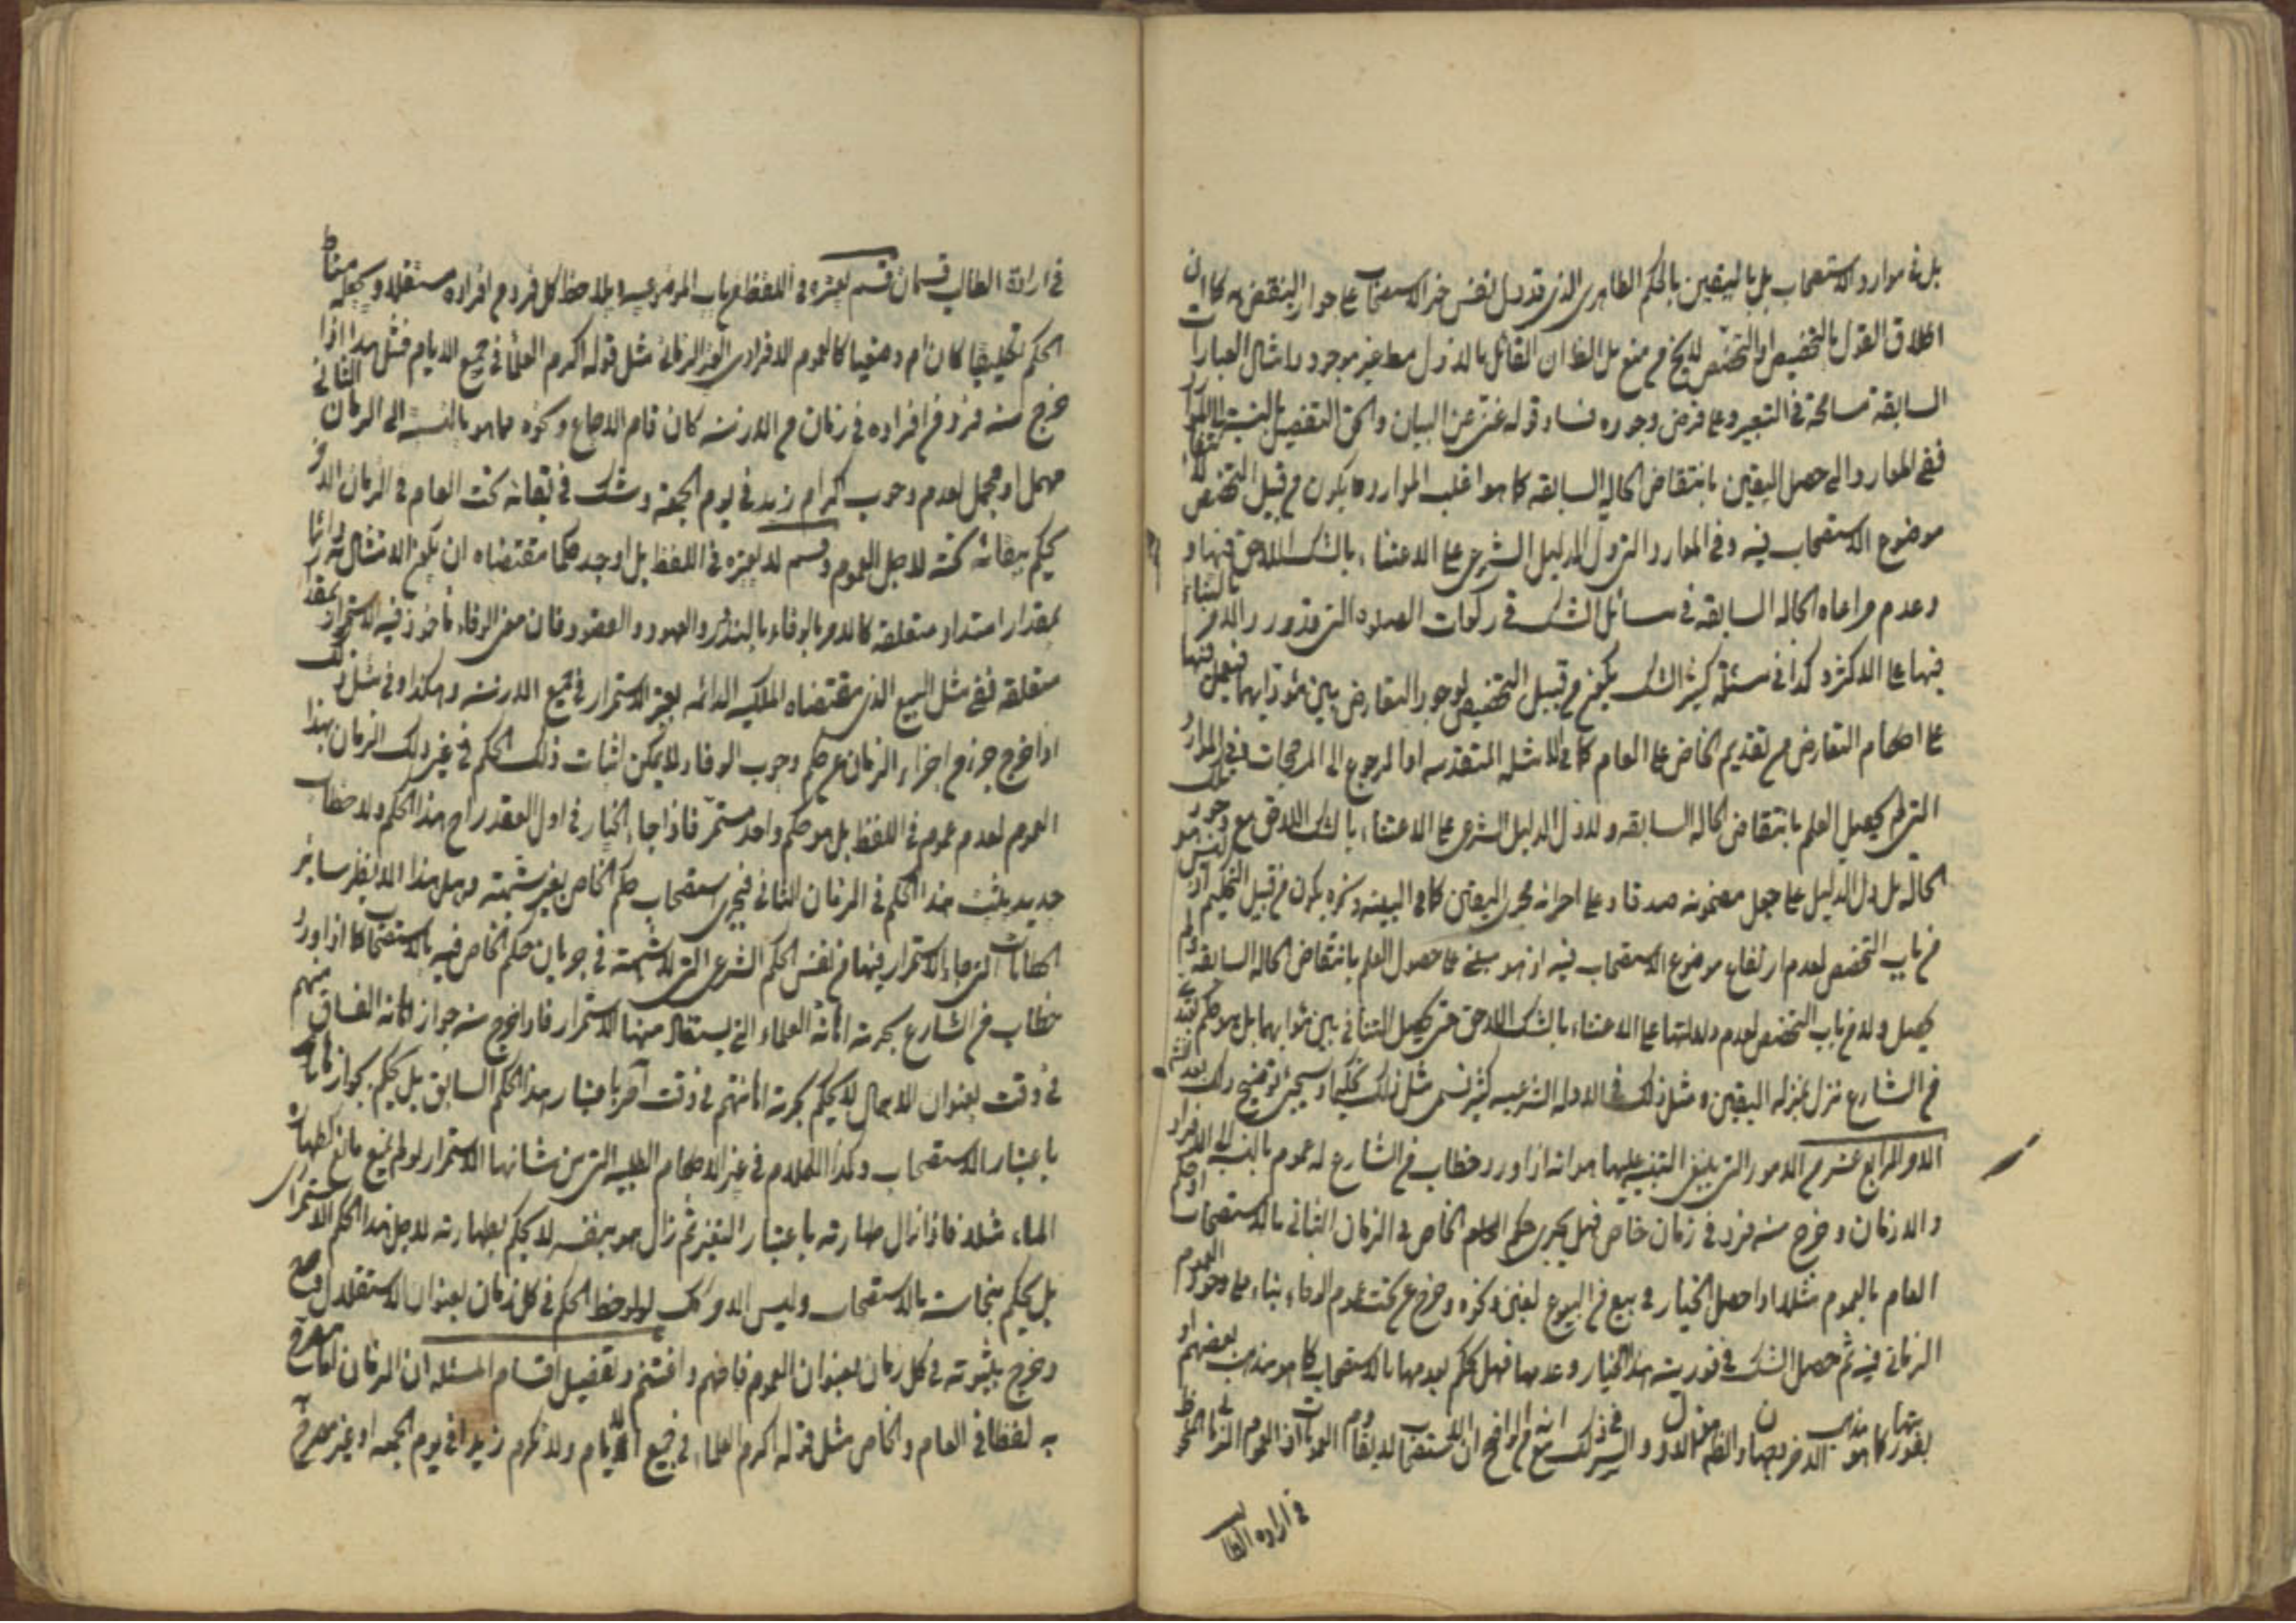 بل في موارد الاستصحاب بل باليقين بالحكم الظاهري الذي قد دل نفس خبر الاستصحاب على جواز النقض به كما ان
اطلاق القول بالتخصيص او التخصص لا يخ من منع بل الظ ان القائل بالاول مط غير موجود وامثال العبارات
السابقة مسامحة في التعبير وعلى فرض وجوده فساد قوله غني عن البيان والحق التفصيل بالنسبة الى الموارد
ففي الموارد التي حصل اليقين بانتقاض الحالة السابقة كما هو اغلب الموارد يكون من قبيل التخصص لانتفاء
موضوع الاستصحاب فيه وفي الموارد التي دل الدليل الشرعي على الاعتناء بالشك اللاحق فيها و
وعدم مراعاة الحالة السابقة في مسائل الشك في ركعات الصلوة التي قد ورد الامر بالبناء
فيها على الاكثر وكذا في مسئلة كثير الشك يكون من قبيل التخصيص لوجود التعارض بين مؤديهما فيعمل فيها
على احكام التعارض من تقديم الخاص على العام كما في الامثلة المتقدمة او الرجوع الى المرجحات وفي الموارد
التي لم يحصل العلم بانتقاض الحالة السابقة ولا دل الدليل الشرعي على الاعتناء بالشك اللاحق مع وجود تلك
الحالة بل دل الدليل على جعل مضمونه صدقا وعلى اجرائه مجرى اليقين كما في البينة ونحوه يكون من قبيل التحكيم اذ ليس هو
من باب التخصص لعدم ارتفاع موضوع الاستصحاب فيه اذ هو مبني على حصول العلم بانتقاض الحالة السابقة ولم
يحصل ولا من باب التخصيص لعدم دلالتها على الاعتناء بالشك اللاحق حتى يحصل التنافي بين مؤديهما بل هو حكم
من الشارع نزل بمنزلة اليقين ومثل ذلك في الادلة الشرعية كثير نسمي مثل ذلك تحكيما وسيجئ توضيح ذلك بعد
الامر الرابع عشر من الامور التي ينبغي التنبيه عليها هو انه اذا ورد خطاب من الشارع له عموم بالنسبة الى الافراد
والازمان وخرج منه فرد في زمان خاص فهل يجري حكم الخاص في الزمان الثاني بالاستصحاب او حكم
العام بالعموم مثلا اذا حصل الخيار في بيع من البيوع لغبن ونحوه وخرج عن تحت عموم الوفاء بناء على وجود العموم
الزماني فيه ثم حصل الشك في فورية هذا الخيار وعدمها فهل يحكم بعدمها بالاستصحاب كما هو مذهب بعضهم او
بفوريتها كما هو مذهب الاخر
في ارادة الطالب
في ارادة الطالب قسمان قسم يعتبره في اللفظ من باب الموضوعية ويلاحظ كل فرد من افراده مستقلا ويجعله مناط
الحكم تكليفيا كان ام وضعيا كالعموم الافرادي الغير الزماني مثل قوله اكرم العلماء في جميع الايام فمثل هذا اذا
خرج منه فرد من افراده في زمان من الازمنة كان قام الاجماع ونحوه مما هو بالنسبة الى الزمان الثاني
مهمل او مجمل لعدم وجوب اكرام زيد في يوم الجمعة وشك في بقائه تحت العام في الزمان الاخر
يحكم ببقائه تحته لاجل العموم وقسم لا يعتبره في اللفظ بل اوجد حكما مقتضاه ان يكون الامتثال به دائما
بمقدار امتداد متعلقه كالامر بالوفاء بالنذر والعهود والعقود فان معنى الوفاء مأخوذ فيه الاستمرار بمقدار
متعلقه ففي مثل البيع الذي مقتضاه الملكية الدائمة يعتبر الاستمرار في جميع الازمنة وهكذا وفي مثل ذلك
اذا خرج جزء من اجزاء الزمان عن حكم وجوب الوفاء ولا يمكن اثبات ذلك الحكم في غير ذلك الزمان بهذا
العموم لعدم عموم في اللفظ بل هو حكم واحد مستمر فاذا جاء الخيار في اول العقد راح هذا الحكم ولا خطاب
جديد يثبت هذا الحكم في الزمان الثاني فيجري استصحاب حكم الخاص بغير شبهة وهل هذا الا نظير سائر
الخطابات التي جاء الاستمرار فيها من نفس الحكم الشرعي التي لا شبهة في جريان حكم الخاص فيه بالاستصحاب كما اذا ورد
خطاب من الشارع بحرمة اهانة العلماء التي يستفاد منها الاستمرار فاذا خرج منه جواز اهانة الفساق منهم
في وقت بعنوان الاجمال لا يحكم بحرمة اهانتهم في وقت آخر باعتبار هذا الحكم السابق بل يحكم بجواز اهانتهم
باعتبار الاستصحاب وكذا الكلام في غير الاحكام الطلبية التي من شانها الاستمرار لو لم يمنع مانع كطهارة
الماء مثلا فاذا زال طهارته باعتبار التغير ثم زال هو بنفسه لا يحكم بطهارته لاجل هذا الحكم الاستمراري
بل يحكم بنجاسته بالاستصحاب وليس الامر كك لو لوحظ الحكم في كل زمان بعنوان الاستقلال وصح
وخرج بثبوته في كل زمان بعنوان العموم فافهم واغتنم وتفصيل اقسام المسئلة ان الزمان اما مصرح
به لفظا في العام والخاص مثل قوله اكرم العلماء في جميع الايام ولا تكرم زيدا في يوم الجمعة او غير مصرح